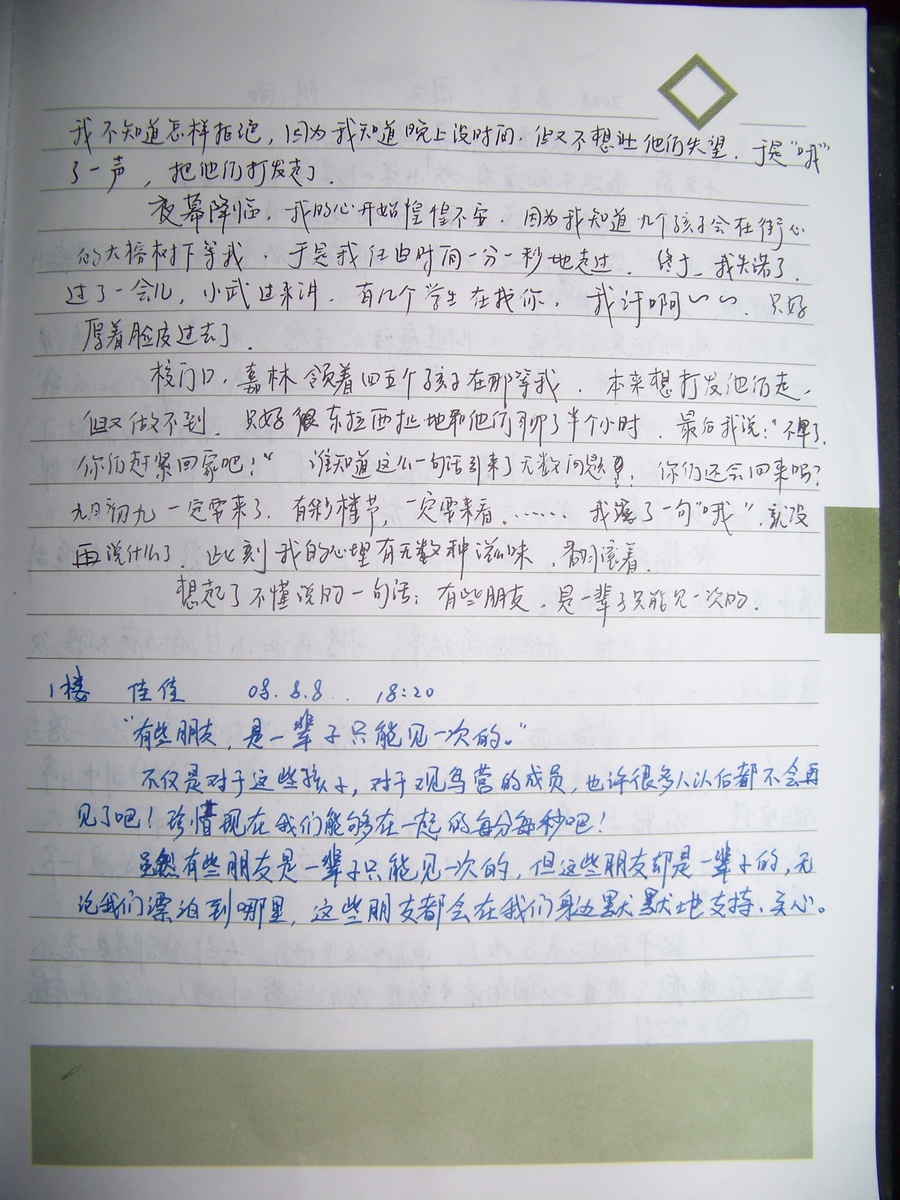 我不知道怎样拒绝，因为我知道晚上没时间，但又不想让他们失望．于是“哦”
了一声，把他们打发走了．
夜幕降临，我的心开始惶惶不安．因为我知道几个孩子会在街心
的大榕树下等我．于是我任由时间一分一秒地走过．终于，我失诺了．
过了一会儿，小武过来讲．有几个学生在找你． 我讶啊～～．只好
厚着脸皮过去了．
校门口，嘉林领着四五个孩子在那等我．本来想打发他们走，
但又做不到．只好东拉西扯地和他们聊了半个小时．最后我说：“不早了．
你们赶紧回家吧！” 谁知道这么一句话引来了无数问题！你们还会回来吗？
九月初九一定要来了．有彩楼节，一定要来看．…… 我 了一句“哦”，就没
再说什么了．此刻我的心里有无数种滋味，翻滚着．
想起了不懂说的一句话：有些朋友．是一辈子只能见一次的．
1楼 佳佳 08.8.8.. 18:20
“有些朋友，是一辈子只能见一次的。”
不仅是对于这些孩子，对于观鸟营的成员，也许很多人以后都不会再
见了吧！珍惜现在我们能够在一起的每分每秒吧！
虽然有些朋友是一辈子只能见一次的，但这些朋友却是一辈子的，无
论我们漂泊到哪里，这些朋友都会在我们身边默默地支持、关心。